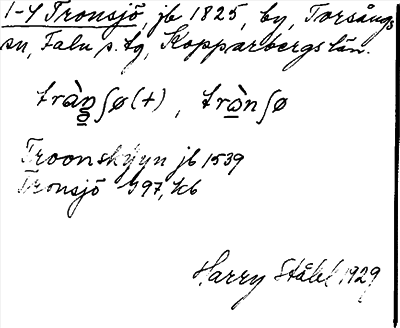 1-4 Tronsjö, jb 1825, by, Torsångs
sn, Falu s. tg, Kopparbergs län.
tràn̥ʃø(t), trànʃø
Troonskiyn jb 1539
Tronsjö 1797, kb
Harry Ståhl 1929